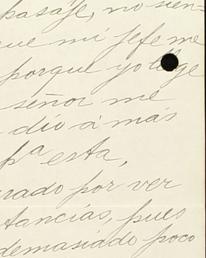 pasaje, no sien-
que mi jefe me
porque yo
señor me
dió a más
pª esta,
rado por ver
tancias, pues
demasiado poco